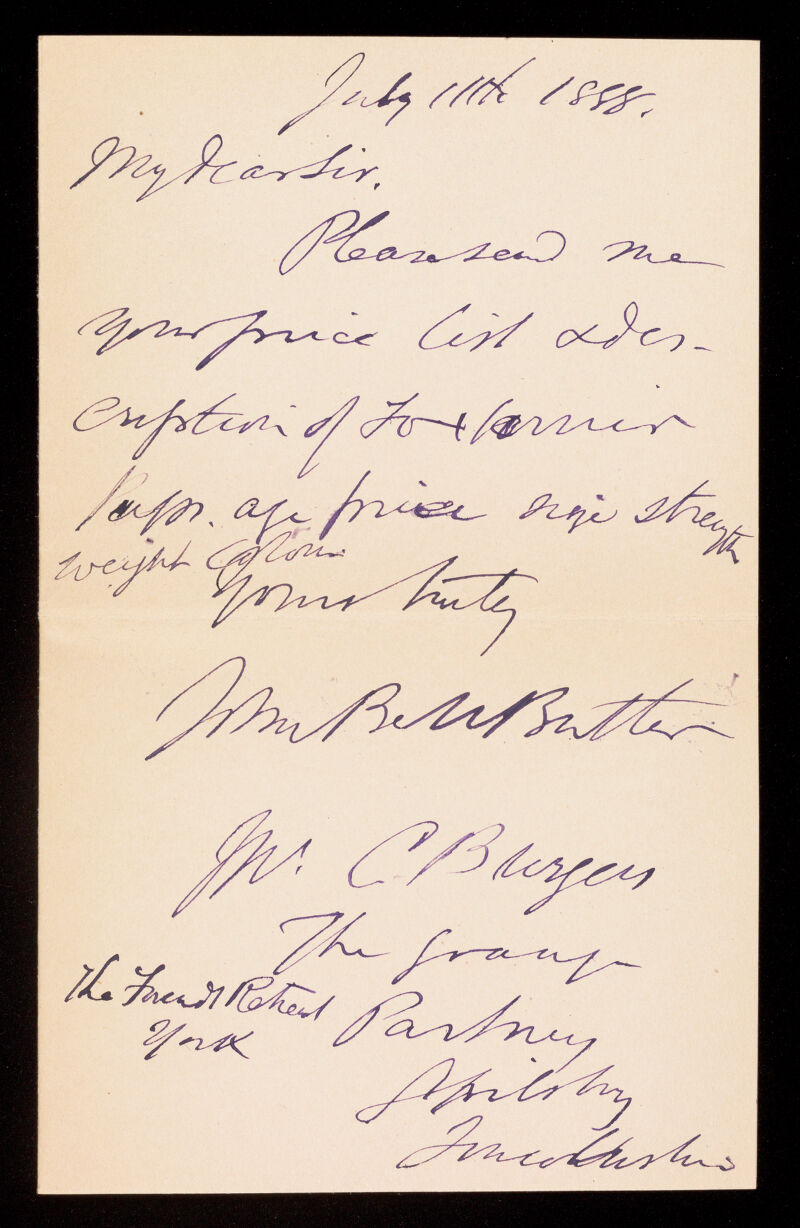 July 11th 1888.
My dear Sir.
Please send me
your price list & des-
cription of Fox terrier
Pups. age price size strength
weight Colour
Yours truly
John Bell Butler
Mr. C Burgess
The Grange
The Friends Retreat
York
Partney
Spilsby
Lincolnshire